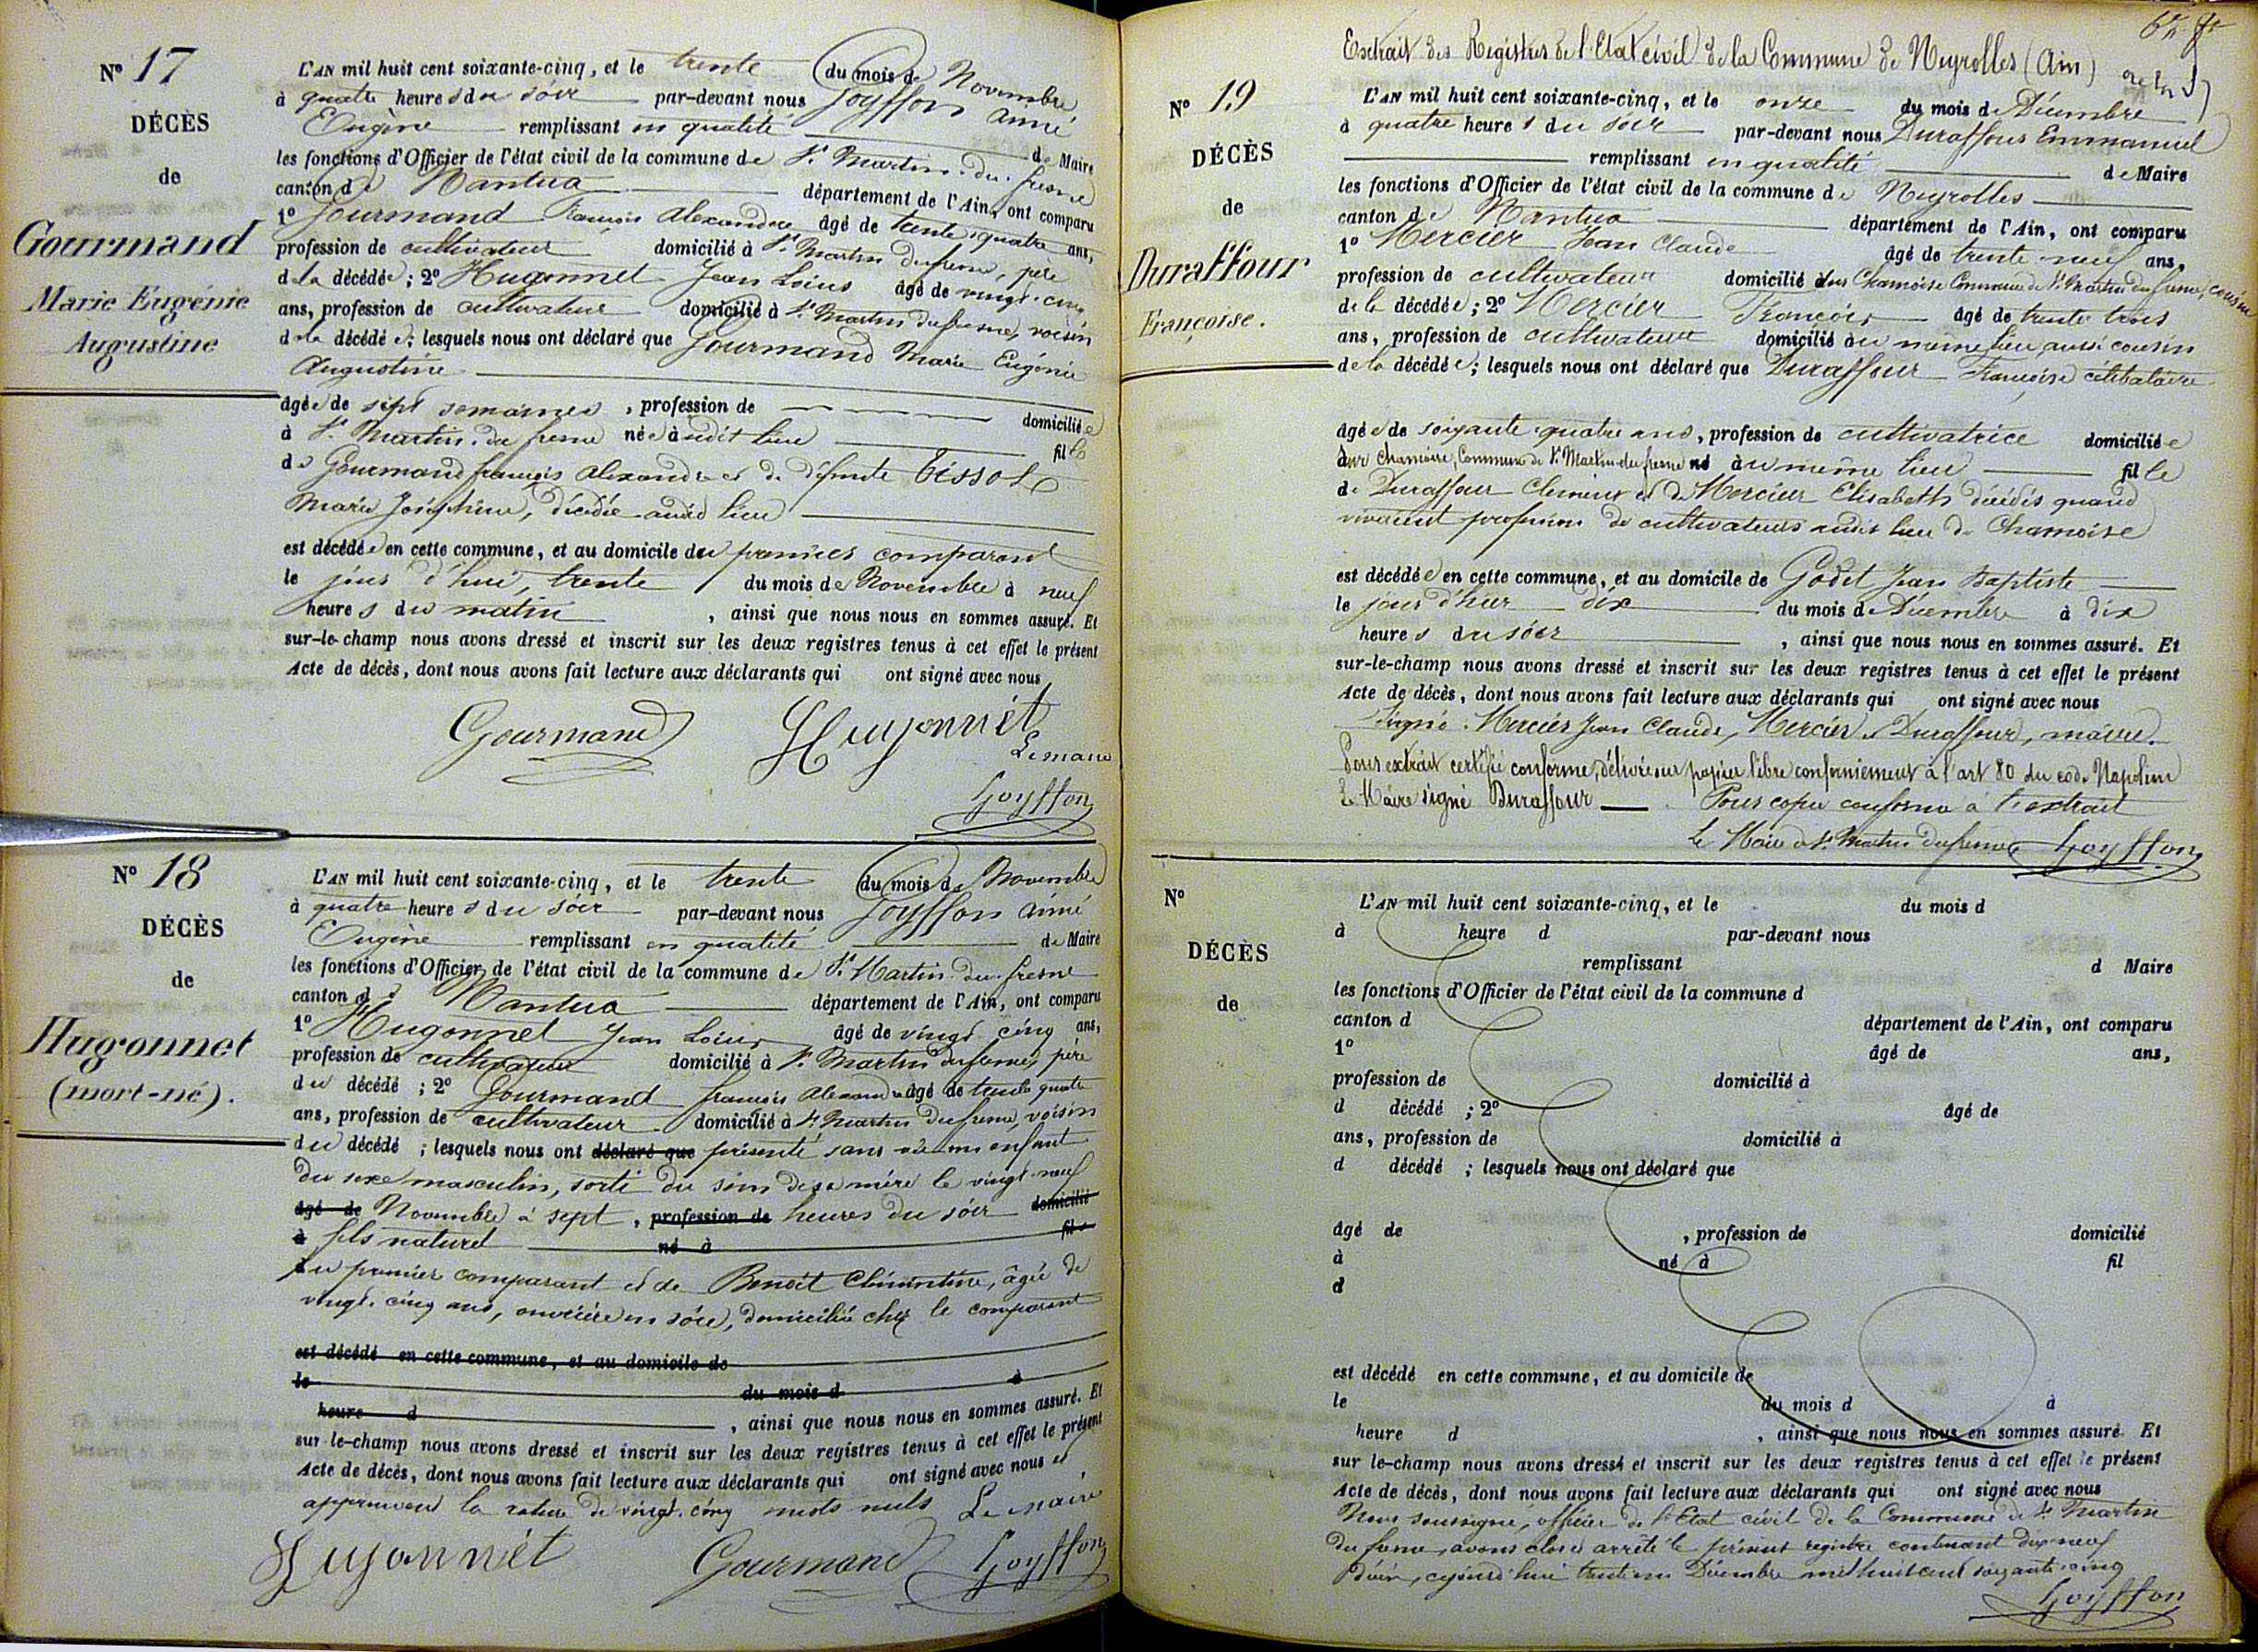 N° 17
DÉCÈS
de
Gourmand
Marie Eugénie
Augustine
L'AN mil huit cent soixante-cinq, et le trente du mois de Novembre
à quatre heures du soir par-devant nous Goyffon aimé
Eugène remplissant en qualité de Maire
les fonctions d'Officier de l'état civil de la commune de St Martin-du-fresne
canton de Nantua département de l'Ain, ont comparu
1° Gourmand françois alexandre âgé de trente-quatre ans,
profession de cultivateur domicilié à St Martin du fresne, père
de la décédée; 2° Hugonnet Jean Loius âgé de vingt-cinq
ans, profession de cultivateur domicilié à St Martin du fresne, voisin
de la décédée; lesquels nous ont déclaré que Gourmand Marie Eugénie
Augustine
âgée de sept semaines, profession de domiciliée
à St Martin-du fresne née audit lieu fille
de Gourmand françois alexandre et de défunte Tissot
Marie Joséphine, décédée audit lieu
est décédée en cette commune, et au domicile du premier comparant
le jour d'hui, trente du mois de Novembre à neuf
heures du matin, ainsi que nous nous en sommes assuré. Et
sur-le-champ nous avons dressé et inscrit sur les deux registres tenus à cet effet le présent
Acte de décès, dont nous avons fait lecture aux déclarants qui ont signé avec nous
Gourmand Hugonnét
Le maire
Goyffon
N° 18
DÉCÈS
de
Hugonnet
(mort-né).
L'AN mil huit cent soixante-cinq, et le trente du mois de Novembre
à quatre heures du soir par-devant nous Goyffon aimé
Eugène remplissant en qualité de Maire
les fonctions d'Officier de l'état civil de la commune de St Martin-du-fresne
canton de Nantua département de l'Ain, ont comparu
1° Hugonnet Jean Loius âgé de vingt cinq ans,
profession de cultivateur domicilié à St Martin du fresne, père
du décédé; 2° Gourmand françois alexandre âgé de trente quatre
ans, profession de cultivateur domicilié à St Martin du fresne, voisin
du décédé; lesquels nous ont déclaré que présenté sans vie un enfant
du sexe masculin, sorti du sein de sa mère le vingt-neuf
âgé de Novembre à sept, profession de heures du soir domicilié
à fils naturel né à fils
du premier comparant et de Benoît Clémentine, âgée de
vingt-cinq ans, ouvrière en soie, domiciliée chez le comparant
est décédé en cette commune, et au domicile de
le du mois d à
heure d , ainsi que nous nous en sommes assuré. Et
sur-le-champ nous avons dressé et inscrit sur les deux registres tenus à cet effet le présent
Acte de décès, dont nous avons fait lecture aux déclarants qui ont signé avec nous et
approuvent la rature de vingt-cinq mots nuls Le maire
Hugonnét Gourmand Goyffon
Extrait des Registres de l'Etat civil de la Commune de Neyrolles (Ain)
N° 19
DÉCÈS
de
Duraffour
Françoise.
L'AN mil huit cent soixante-cinq, et le onze du mois de Décembre
à quatre heures du soir par-devant nous Duraffour Emmanuel
remplissant en qualité de Maire
les fonctions d'Officier de l'état civil de la commune de Neyrolles
canton de Nantua département de l'Ain, ont comparu
1° Mercier Jean Claude âgé de trente neuf ans,
profession de cultivateur domicilié à sur Chamoise Commune de St Martin du fresne, cousin
de la décédée; 2° Mercier François âgé de trente trois
ans, profession de cultivateur domicilié au même lieu, aussi cousin
de la décédée; lesquels nous ont déclaré que Duraffour Françoise célibataire
âgée de soixante-quatre ans, profession de cultivatrice domiciliée
à sur Chamoise, Commune de St Martin-du-fresne né au même lieu fille
de Duraffour Clément et de Mercier Elisabeth décédés quand
vivaient profession de cultivateurs audit lieu de Chamoise
est décédée en cette commune, et au domicile de Godet Jean Baptiste
le jour d'hier dix du mois de Décembre à dix
heures du soir, ainsi que nous nous en sommes assuré. Et
sur-le-champ nous avons dressé et inscrit sur les deux registres tenus à cet effet le présent
Acte de décès, dont nous avons fait lecture aux déclarants qui ont signé avec nous
Signé: Mercier Jean Claude, Mercier, Duraffour, maire.
Pour extrait certifié conforme, délivré sur papier libre conformément à l'art 80 du code Napoléon
Le Maire signé Duraffour Pour copie conforme à l'extrait
Le Maire de St Martin du fresne Goyffon
N°
DÉCÈS
de
L'AN mil huit cent soixante-cinq, et le du mois d
à heure d par-devant nous
remplissant d Maire
les fonctions d'Officier de l'état civil de la commune d
canton d département de l'Ain, ont comparu
1° âgé de ans,
profession de domicilié à
d décédé ; 2° âgé de
ans, profession de domicilié à
d décédé ; lesquels nous ont déclaré que
âgé de , profession de domicilié
à né à fil
d
est décédé en cette commune, et au domicile de
le du mois d à
heure d , ainsi que nous nous en sommes assuré. Et
sur le-champ nous avons dressé et inscrit sur les deux registres tenus à cet effet le présent
Acte de décès, dont nous avons fait lecture aux déclarants qui ont signé avec nous
Nous soussigné, officier de l'Etat civil de la Commune de St Martin
du fresne, avons clos et arrêté le présent registre contenant dix-neuf
décès, cejourd'hui Décembre mil huit cent soixante-cinq
Goyffon